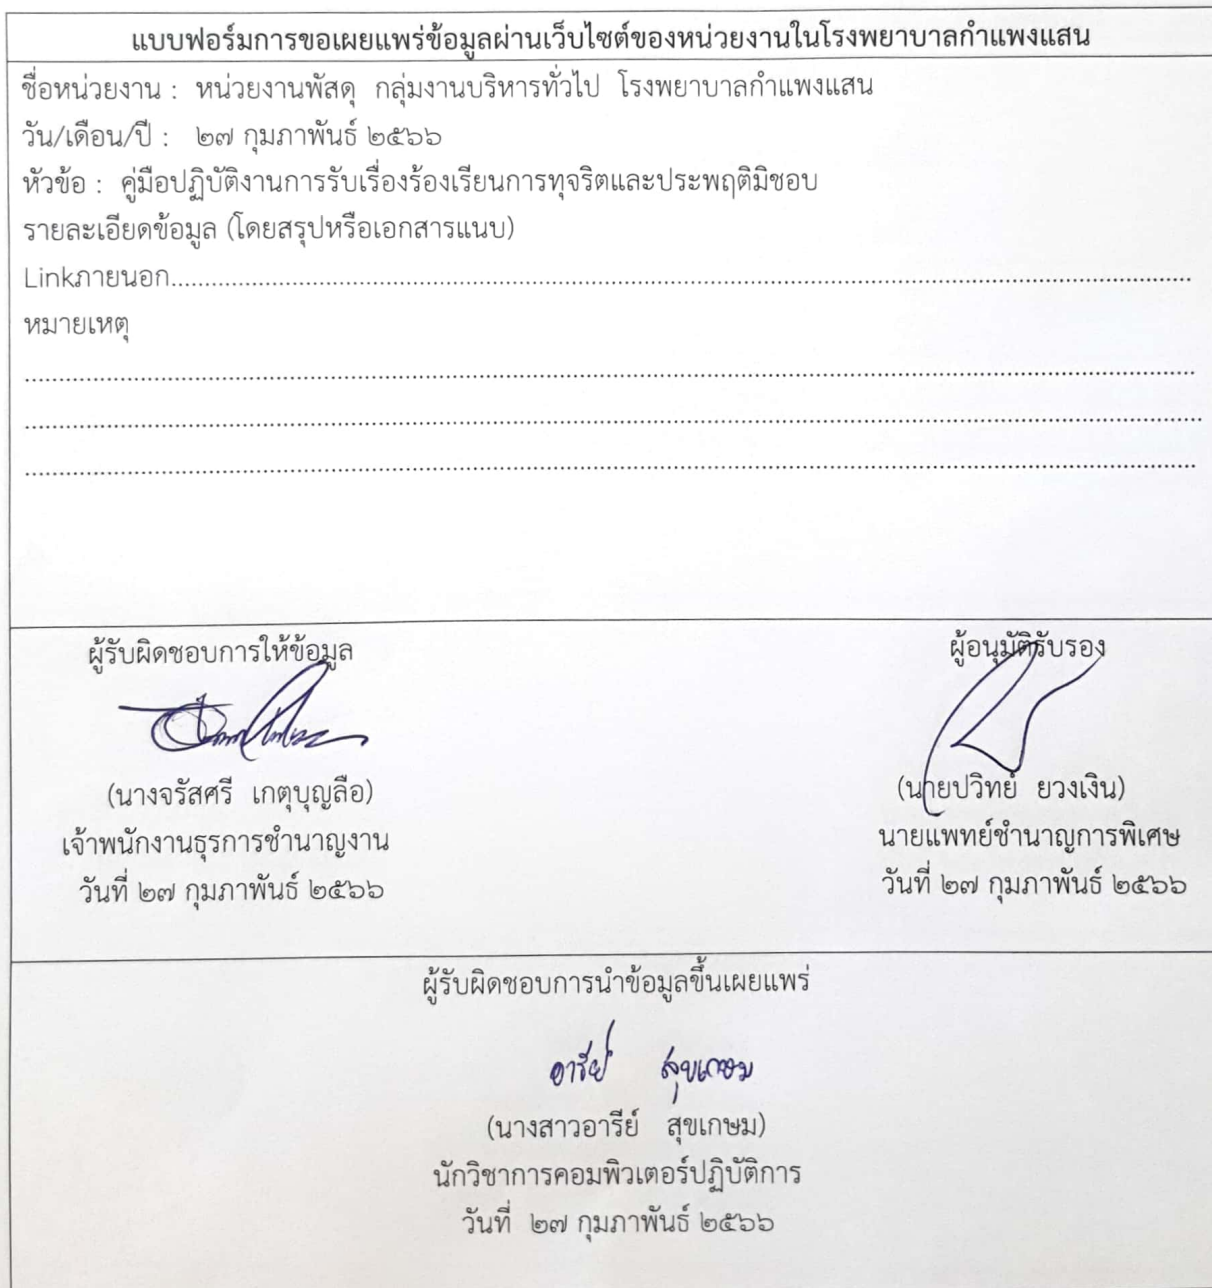 แบบฟอร์มการขอเผยแพร่ข้อมูลผ่านเว็บไซต์ของหน่วยงานในโรงพยาบาลกำแพงแสน
ชื่อหน่วยงาน : หน่วยงานพัสดุ กลุ่มงานบริหารทั่วไป โรงพยาบาลกำแพงแสน
วัน/เดือน/ปี : ๒๗ กุมภาพันธ์ ๒๕๖๖
หัวข้อ : คู่มือปฏิบัติงานการรับเรื่องร้องเรียนการทุจริตและประพฤติมิชอบ
รายละเอียดข้อมูล (โดยสรุปหรือเอกสารแนบ)
Linkภายนอก
หมายเหตุ
ผู้รับผิดชอบการให้ข้อมูล
(นางจรัสศรี เกตุบุญลือ)
เจ้าพนักงานธุรการชำนาญงาน
วันที่ ๒๗ กุมภาพันธ์ ๒๕๖๖
ผู้อนุมัติรับรอง
(นายปวิทย์ ยวงเงิน)
นายแพทย์ชำนาญการพิเศษ
วันที่ ๒๗ กุมภาพันธ์ ๒๕๖๖
ผู้รับผิดชอบการนำข้อมูลขึ้นเผยแพร่
อารีย์ สุขเกษม
(นางสาวอารีย์ สุขเกษม)
นักวิชาการคอมพิวเตอร์ปฏิบัติการ
วันที่ ๒๗ กุมภาพันธ์ ๒๕๖๖